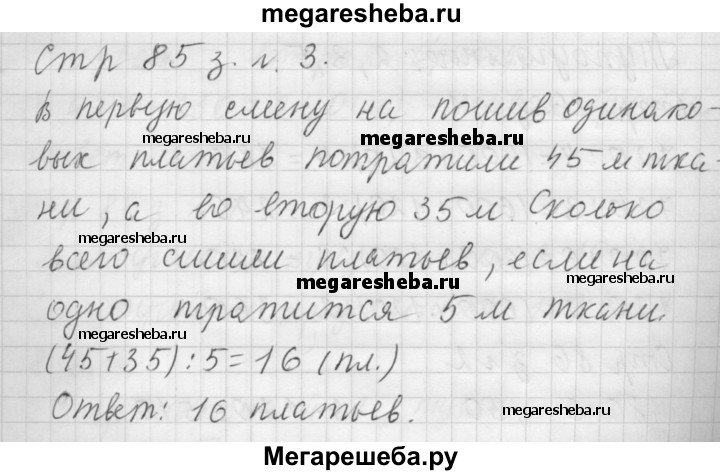 megaresheba.ru
Стр 85 з. г. 3.
В первую смену на пошив одинако-
megaresheba.ru megaresheba.ru
вых платьев потратили 45 м тка-
ни, а во вторую 35 м. Сколько
megaresheba.ru
всего сшили платьев, если на
megaresheba.ru
одно тратится 5 м ткани.
megaresheba.ru
(45+35):5=16 (пл.)
Ответ: 16 платьев.
megaresheba.ru
Мегарешеба.ру